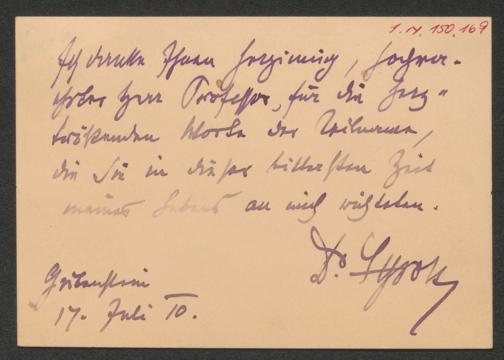 I. N. 150.169
Ich danke Ihnen herzinnig, hochver-
ehrter Herr Professor, für die herz-
tröstenden Worte der Teilnahme,
die Sie in dieser bittersten Zeit
meines Lebens an mich richteten.
Dr.
17. Juli 10.